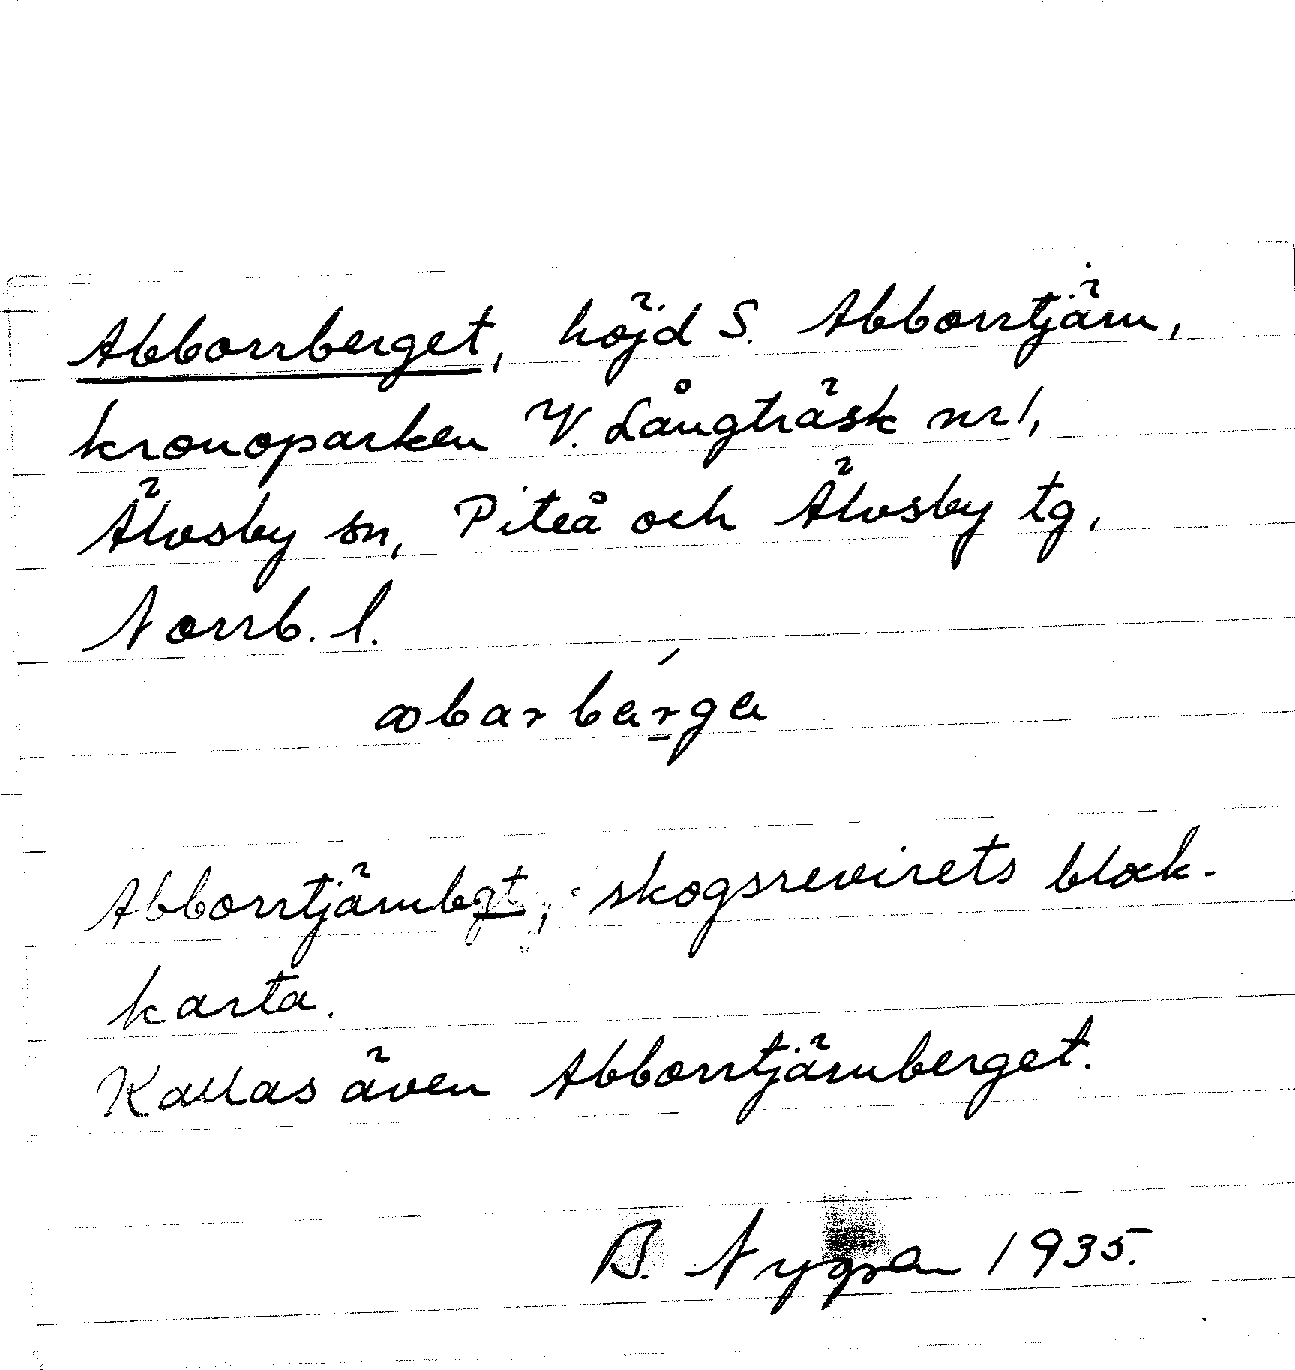 Abborrberget, höjd S. Abborrtjärn,
kronoparken V. Långträsk nr 1,
Älvsby sn, Piteå och Älvsby tg,
Norrb. l.
abarbärga
Abborrtjärnbgt, skogsrevirets block-
karta.
Kallas även Abborrtjärnberget.
B. Nygren 1935.